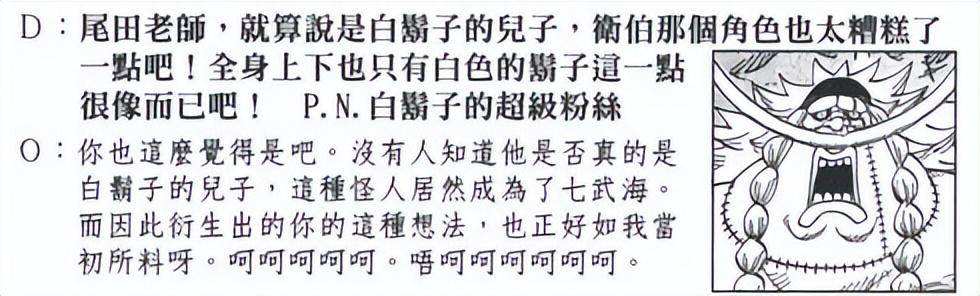 D：尾田老師，就算說是白鬍子的兒子，衛伯那個角色也太糟糕了
一點吧！全身上下也只有白色的鬍子這一點
很像而已吧！ P.N.白鬍子的超級粉絲
O：你也這麼覺得是吧。沒有人知道他是否真的是
白鬍子的兒子，這種怪人居然成為了七武海。
而因此衍生出的你的這種想法，也正好如我當
初所料呀。呵呵呵呵呵。唔呵呵呵呵呵呵。